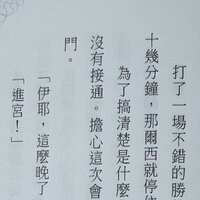 打了一場不錯的勝
十幾分鐘，那爾西就停
為了搞清楚是什麼
沒有接通。擔心這次會
門。
「伊耶，這麼晚了
「進宮！」